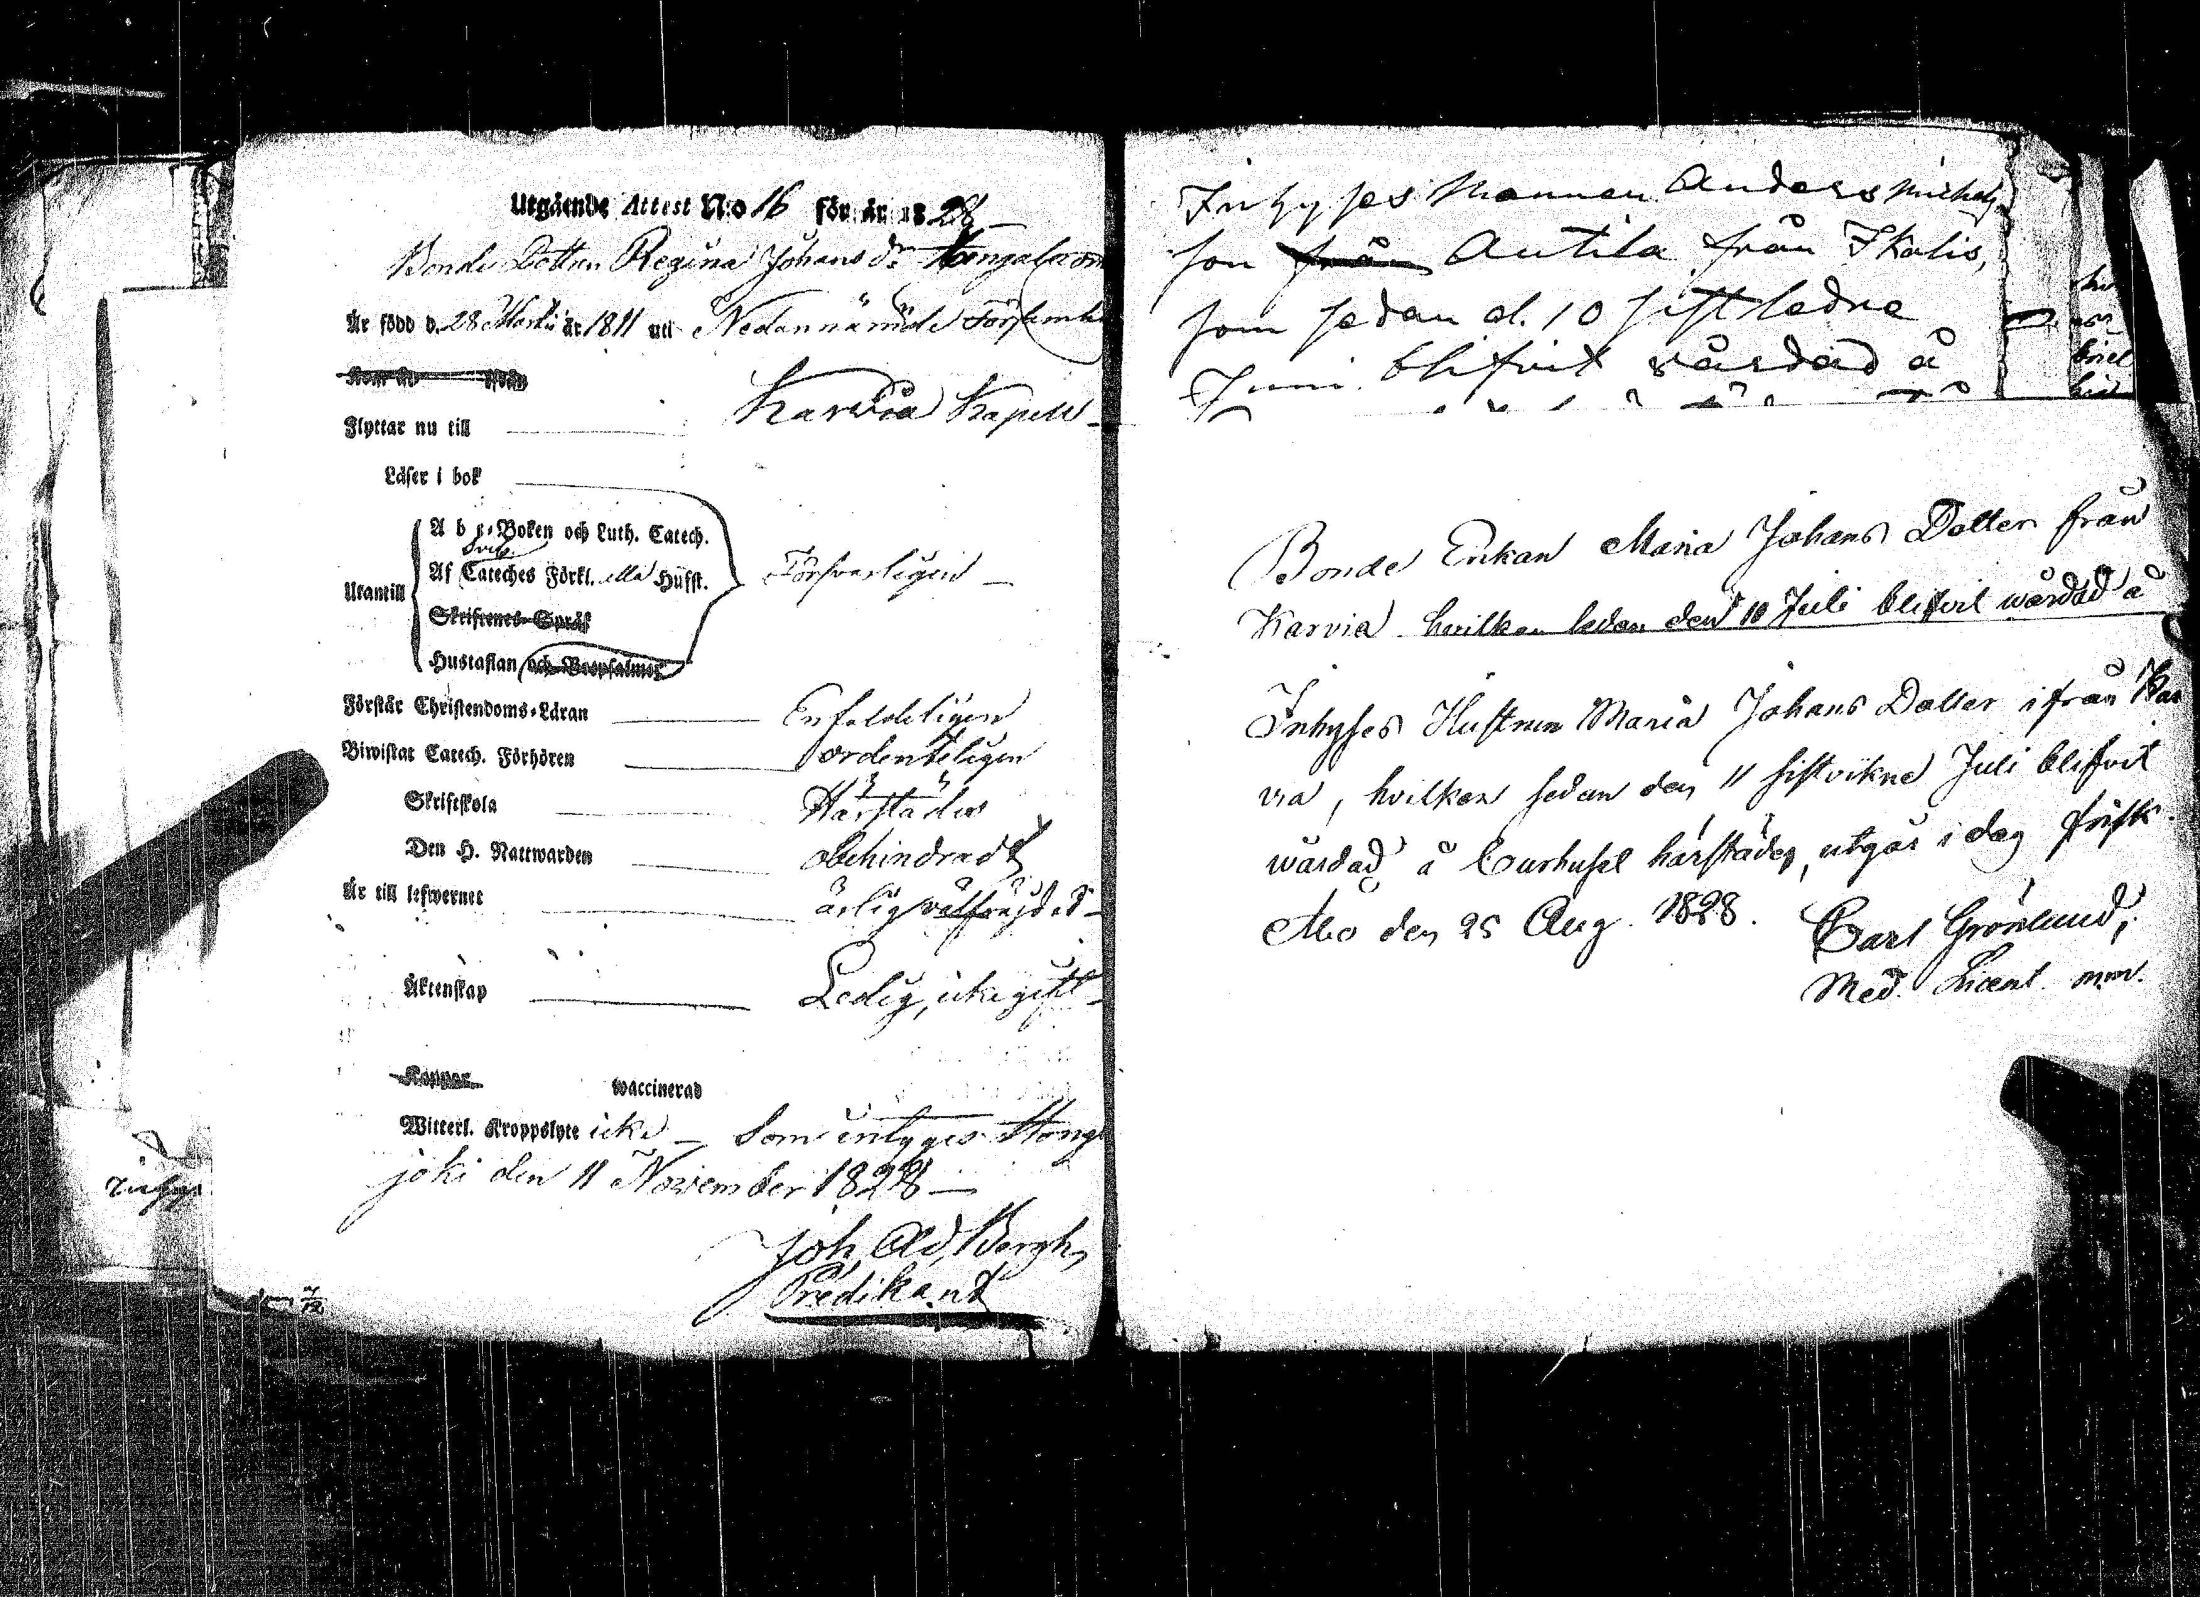 Utgående Attest No 16 för år 1828
Bonde Dottren Regina Johans dr
Är född d. 28 Martii år 1811 uti Nedannämde Församl
Flyttar nu till Karvia Kapell
Läser i bok
A b c-Boken och Luth. Catech.
Af Cateches Förkl. Husst.
Utantill Försvarligen
Skriftenes-Språk
Hustaflan och Bootpsalmer
Förstår Christendoms-Läran Enfaldeligen
Biwistat Catech. Förhören ordenteligen
Skriftskola Härstädes
Den H. Nattwarden obehindradt
Är till lefwernet ärlig välfräjdad
Äktenskap Ledig, icke gift
Koppor waccinerad
Witterl. Kroppslyte icke Som intygas Hong
joki den 11 November 1828
Joh. Ad. Bergh,
Predikant
Inhyses Mannen Anders Michels
son från Antila från Ikalis,
som sedan d. 10 sistledne
Juni blifvit vårdad å
Bonde Enkan Maria Johans Dotter från
Karvia hvilken sedan den 10 Juli blifvit wårdad å
Inhyses Hustrun Maria Johans Dotter ifrån Kar
via, hvilken sedan den 11 sistvikne Juli blifvit
wårdad å Curhuset härstädes, utgår i dag frisk.
Åbo den 25 Aug. 1828. Carl Grönlund,
Med. Licent.